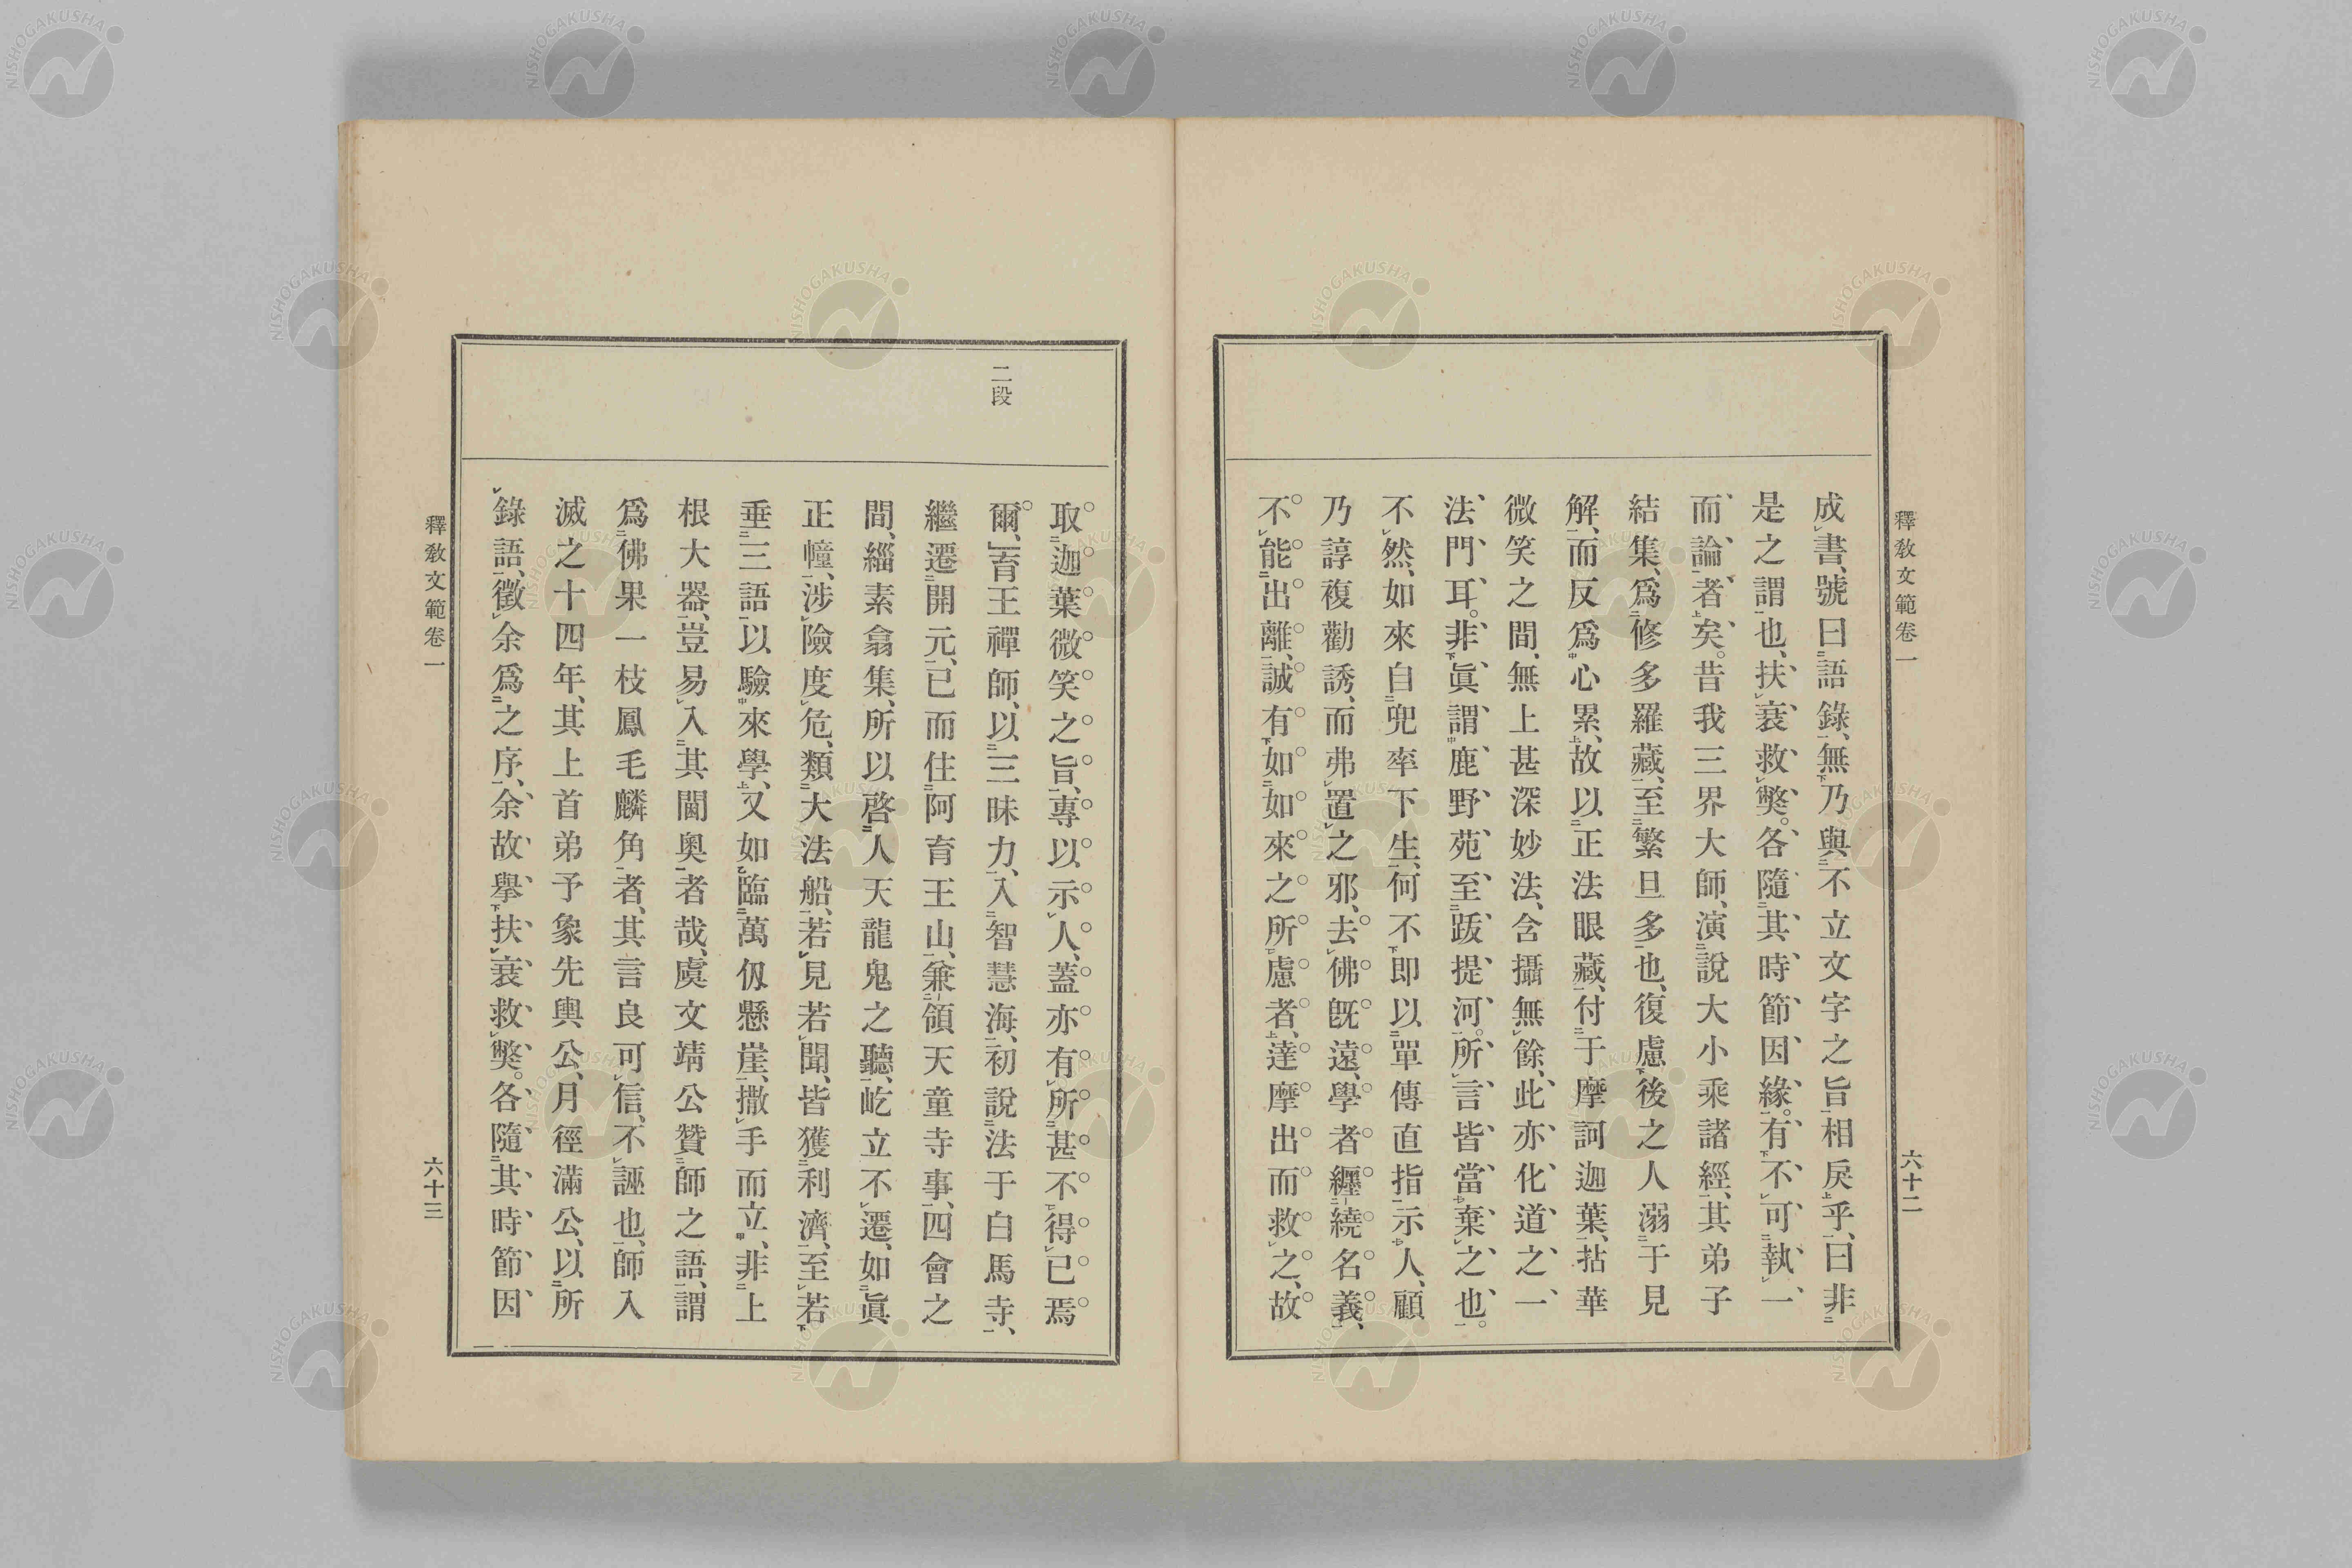 釋教文範卷一
六十二
成書、號曰語錄、無乃與不立文字之旨相戾乎、曰非
是之謂也、扶衰救弊。各隨其時節因緣。有不可執一
而論者矣。昔我三界大師、演說大小乘諸經、其弟子
結集、爲修多羅藏、至繁且多也、復慮後之人溺于見
解、而反爲心累、故以正法眼藏、付于摩訶迦葉、拈華
微笑之間、無上甚深妙法、含攝無餘、此亦化道之一
法門耳。非眞謂鹿野苑至跋提河。所言皆當棄之也。
不然、如來自兜率下生、何不即以單傳直指示人、顧
乃諄複勸誘、而弗置之邪、去佛既遠、學者纏繞名義、
不能出離、誠有如如來之所慮者、達摩出而救之、故
二段
取迦葉微笑之旨、專以示人、蓋亦有所甚不得已焉
爾、育王禪師、以三昧力、入智慧海、初說法于白馬寺、
繼遷開元、已而住阿育王山、兼領天童寺事、四會之
間、緇素翕集、所以啓人天龍鬼之聽、屹立不遷、如眞
正幢、涉險度危、類大法船、若見若聞、皆獲利濟、至若
垂三語以驗來學、又如臨萬仭懸崖、撒手而立、非上
根大器、豈易入其閫奧者哉、虞文靖公贊師之語、謂
爲佛果一枝鳳毛麟角者、其言良可信、不誣也、師入
滅之十四年、其上首弟予象先輿公、月徑滿公、以所
錄語、徵余爲之序、余故擧扶衰救弊。各隨其時節因
釋教文範卷一
六十三
NISHOGAKUSHA